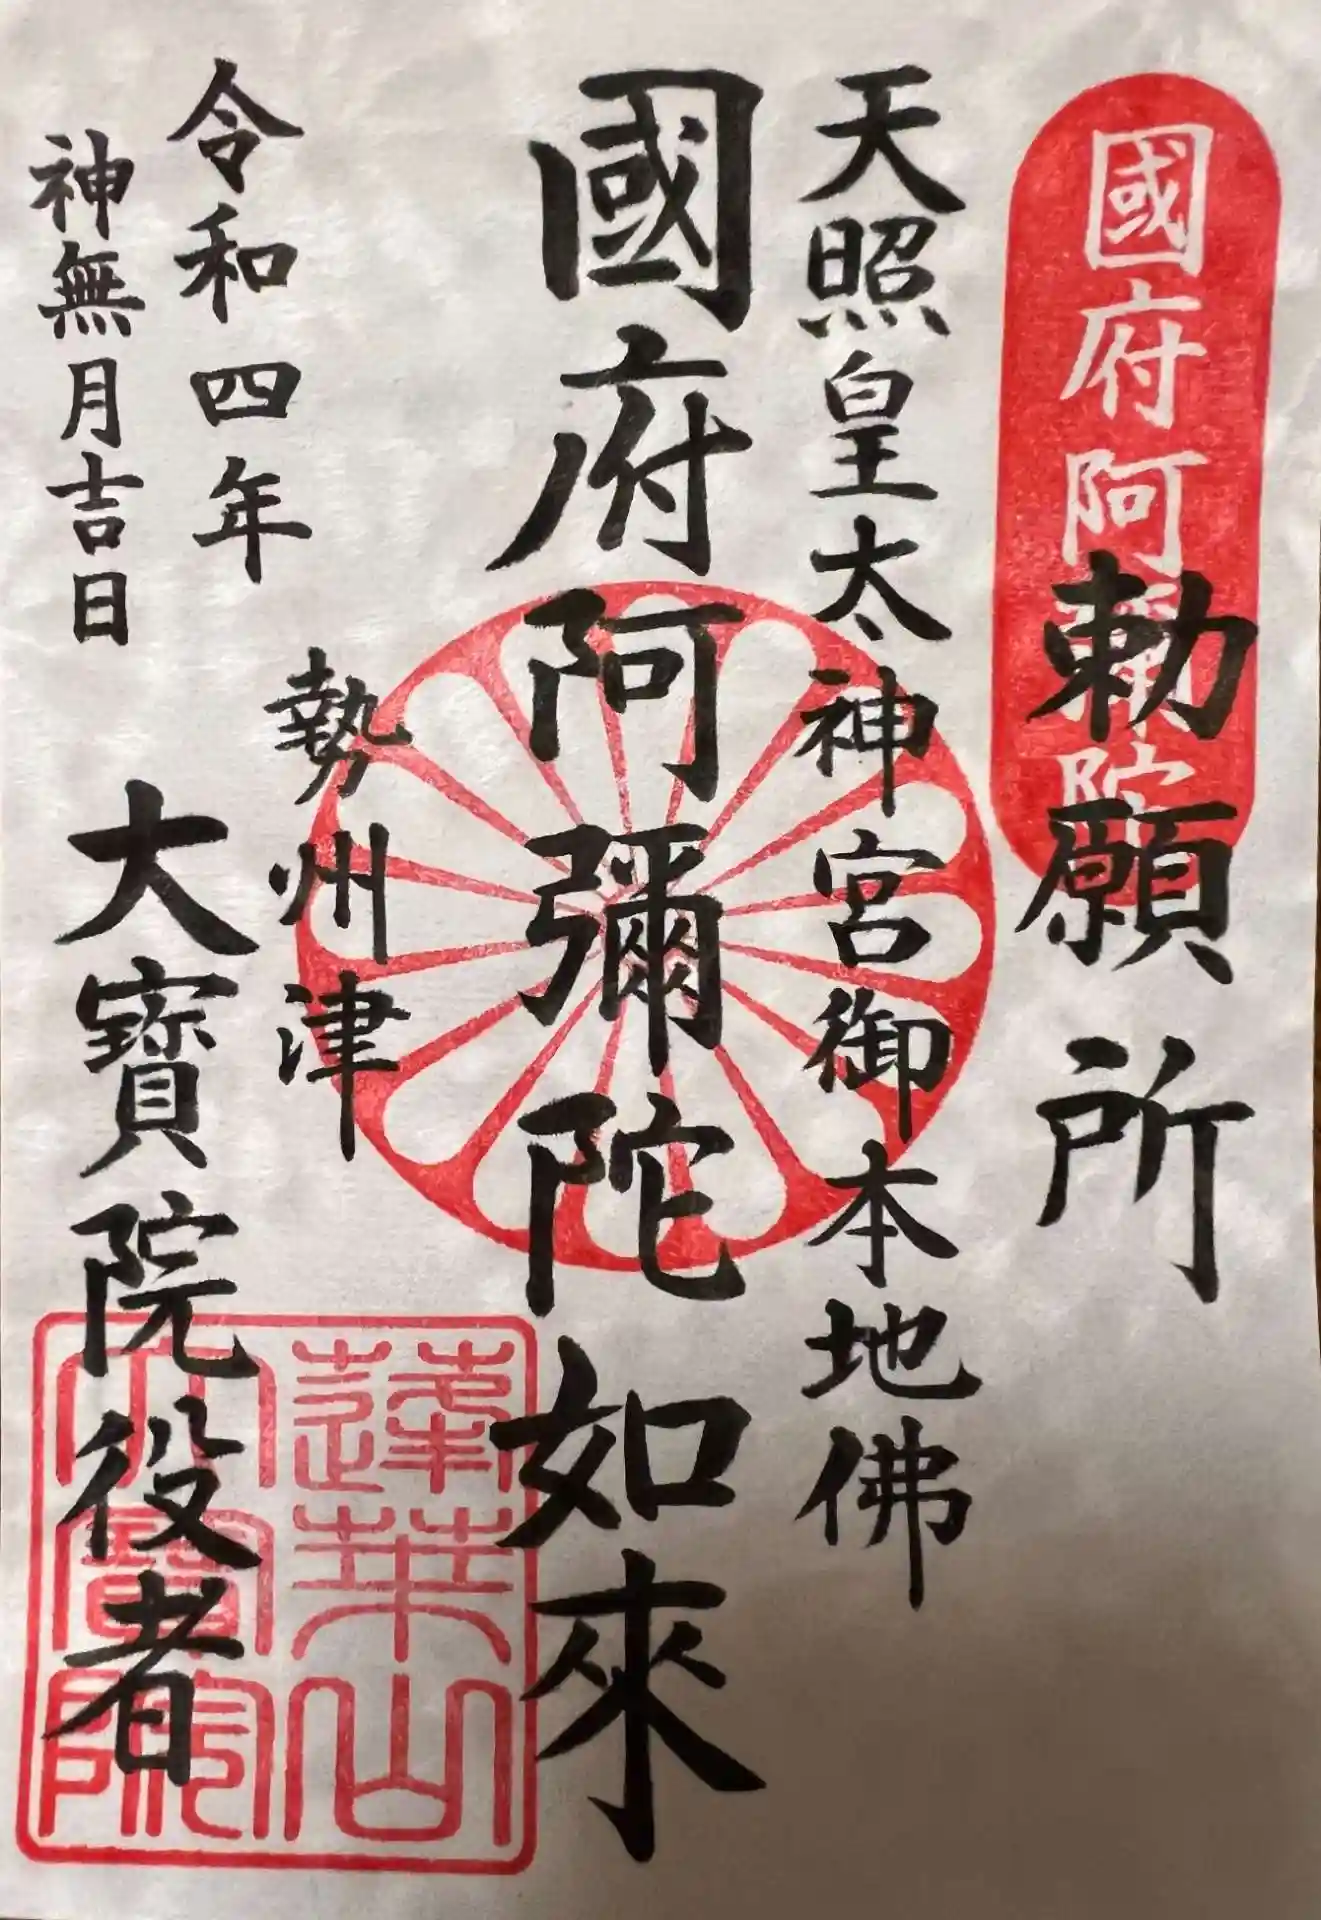 國府阿彌陀
勅願所
天照皇太神宮御本地佛
國府阿彌陀如來
勢州津
大寳院役者
令和四年
神無月吉日
蓮華山
大寳院